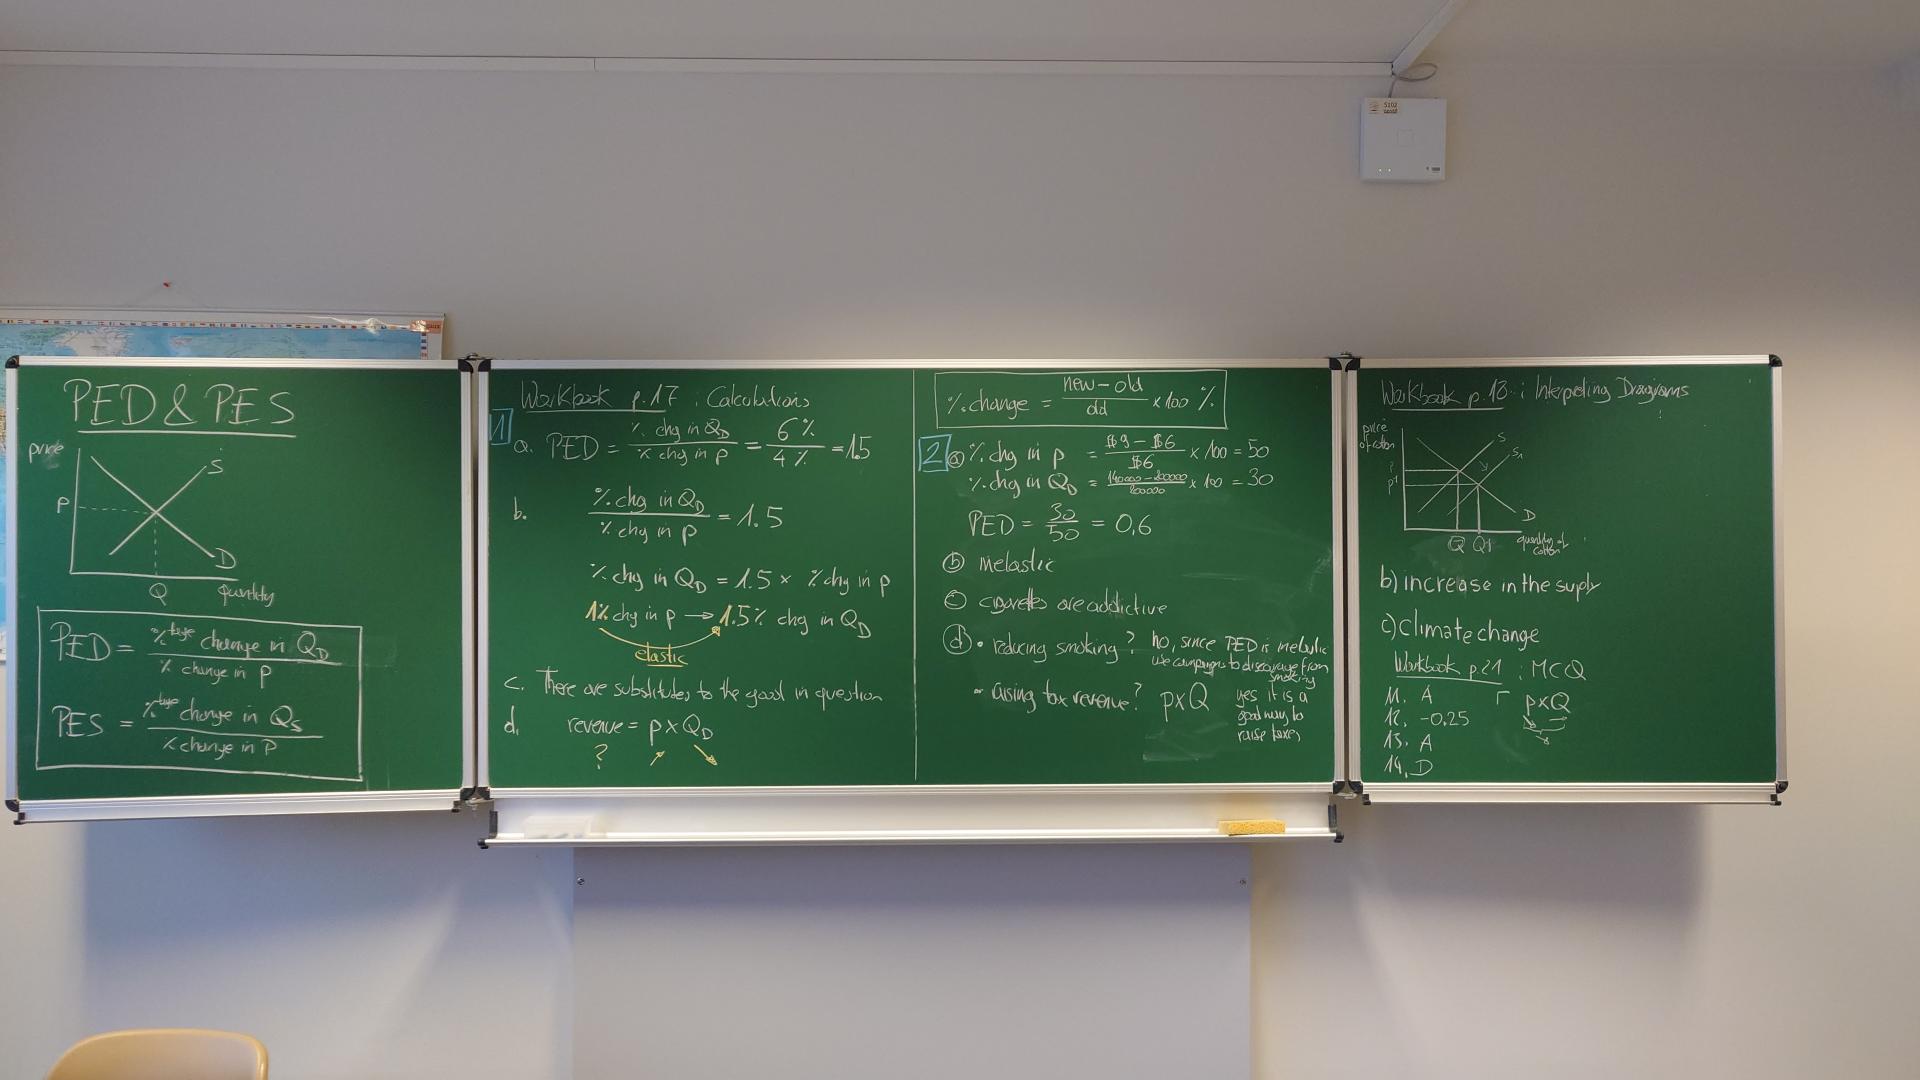 PED & PES
price
S
P
D
Q
quantity
PED = %tage change in QD / % change in P
PES = %tage change in QS / % change in P
Workbook p.17 : Calculations
1
a. PED = % chg in QD / % chg in p = 6% / 4% = 1.5
b. % chg in QD / % chg in p = 1.5
% chg in QD = 1.5 × % chg in p
1% chg in p → 1.5% chg in QD
elastic
c. There are substitutes to the good in question
d. revenue = p x QD
?
% change = new - old / old x 100 %
2
a % chg in p = $9 - $6 / $6 x 100 = 50
% chg in QD = 140000 - 200000 / 200000 x 100 = 30
PED = 30 / 50 = 0,6
b inelastic
c cigarettes are addictive
d • reducing smoking? no, since PED is inelastic
use campaigns to discourage from
smoking
• raising tax revenue? pxQ yes it is a
good way to
raise taxes
Workbook p. 18 : Interpreting Diagrams
price
of cotton
S
S1
P
P1
D
Q Q1
quantity of
cotton
b) increase in the supply
c) Climate change
Workbook p.21 : MCQ
11. A
pxQ
12. -0.25
13. A
14. D
S102